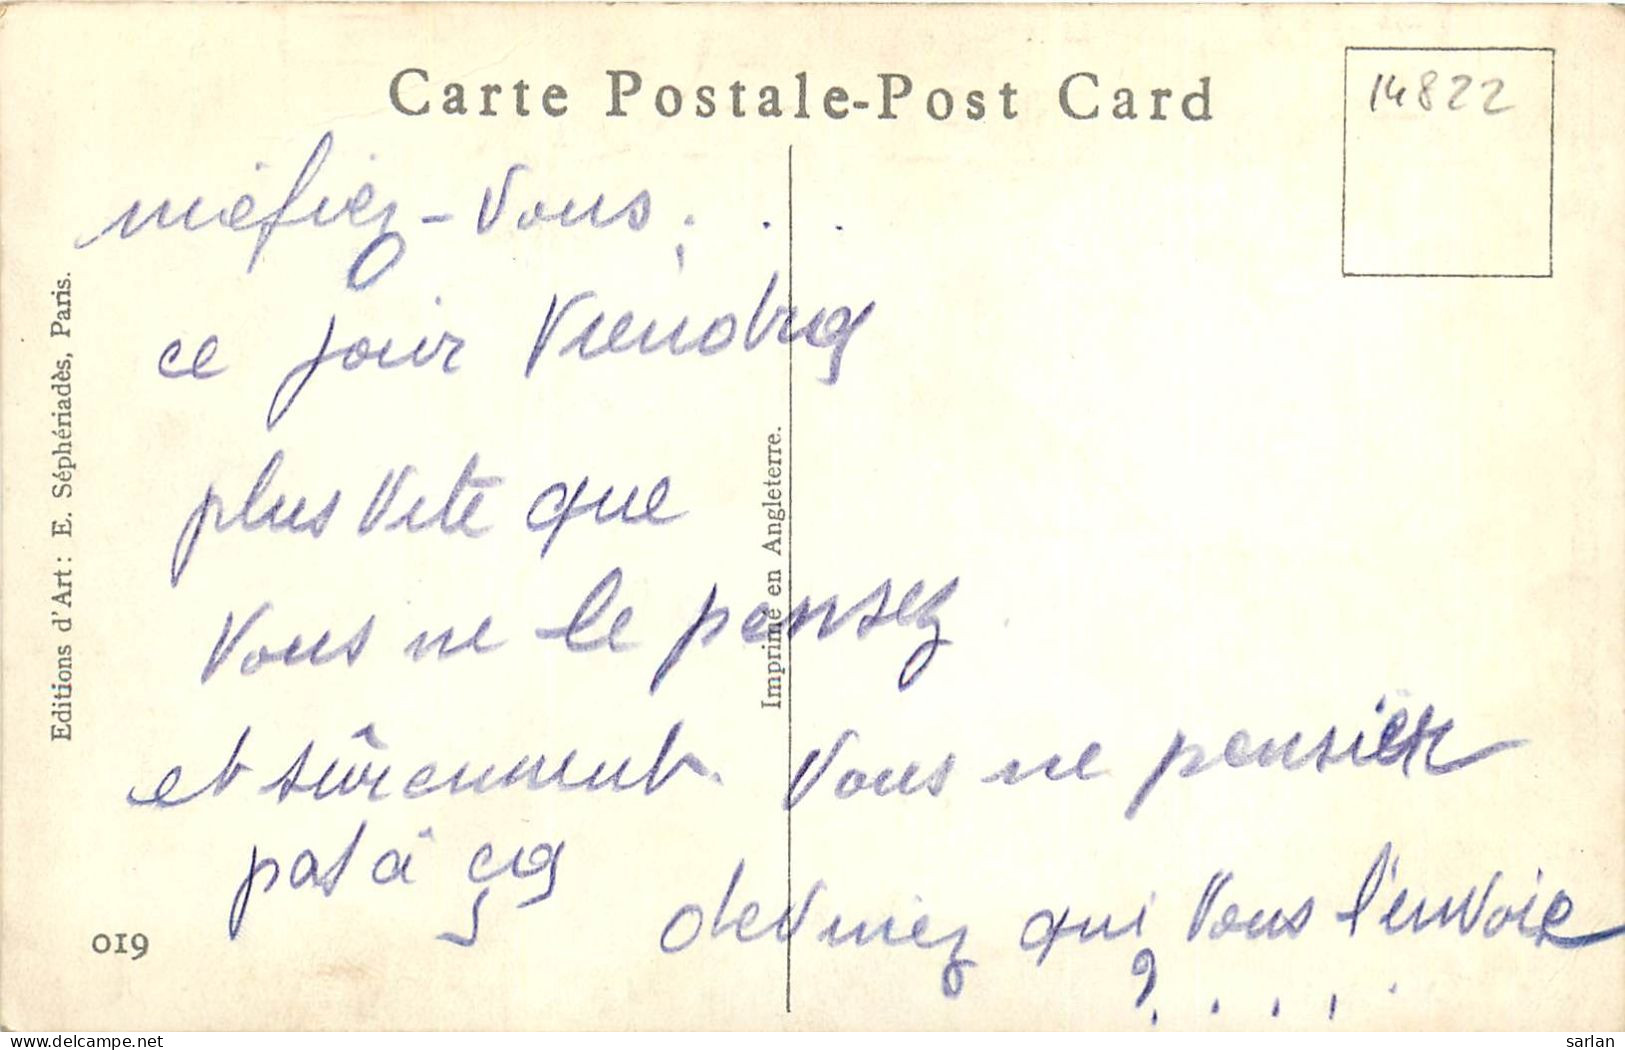 Carte Postale-Post Card
14822
méfiez-vous . . .
ce jour viendra
plus vite que
vous ne le pensez
et sûrement vous ne pensiez
pas à ça
devinez qui vous l'envoie
? . . . .
Editions d'Art: E. Séphériadès, Paris.
Imprimé en Angleterre.
019
delcampe.net
sarlan